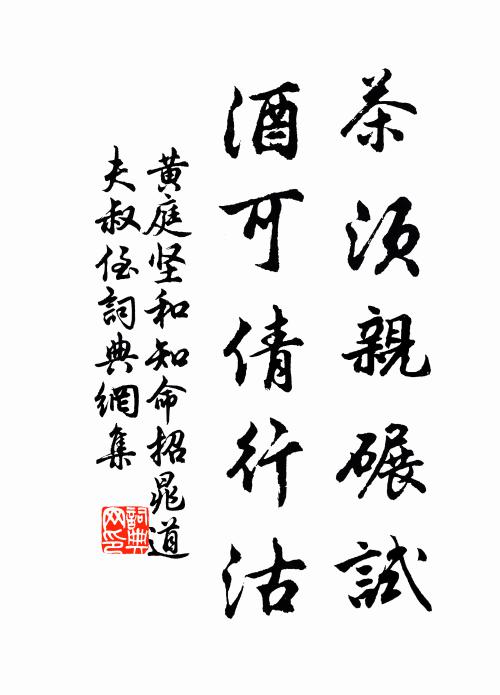 茶須親碾試
酒可倩行沽
黄庭坚和知命招晁道
夫叔侄詞典網集
詞典
网印